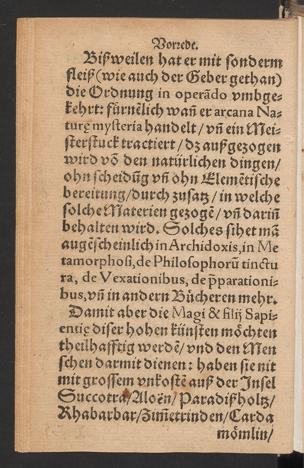 Vorrede.
Bißweilen hat er mit sonderm
fleiß (wie auch der Geber gethan)
die Ordnung in operādo vmbge-
kehrt: fürnēlich wañ er arcana Na-
turę mysteria handelt / vñ ein Mei-
sterstuck tractiert / dz auffgezogen
wird vō den natürlichen dingen /
ohn scheidūg vñ ohn Elemētische
bereitung / durch zusatz / in welche
solche Materien gezogē / vñ dariñ
behalten wird. Solches sihet mā
augēscheinlich in Archidoxis, in Me
tamorphosi, de Philosophorū tinctu
ra, de Vexationibus, de p̄parationi-
bus, vñ in andern Bücheren mehr.
Damit aber die Magi & filij Sapi-
entię diser hohen künsten möchten
theilhafftig werdē / vnd den Men
schen darmit dienen: haben sie nit
mit grossem vnkostē auß der Insel
Succotra / Aloën / Paradißholtz /
Rhabarbar / Zim̄etrinden / Carda
mömlin /